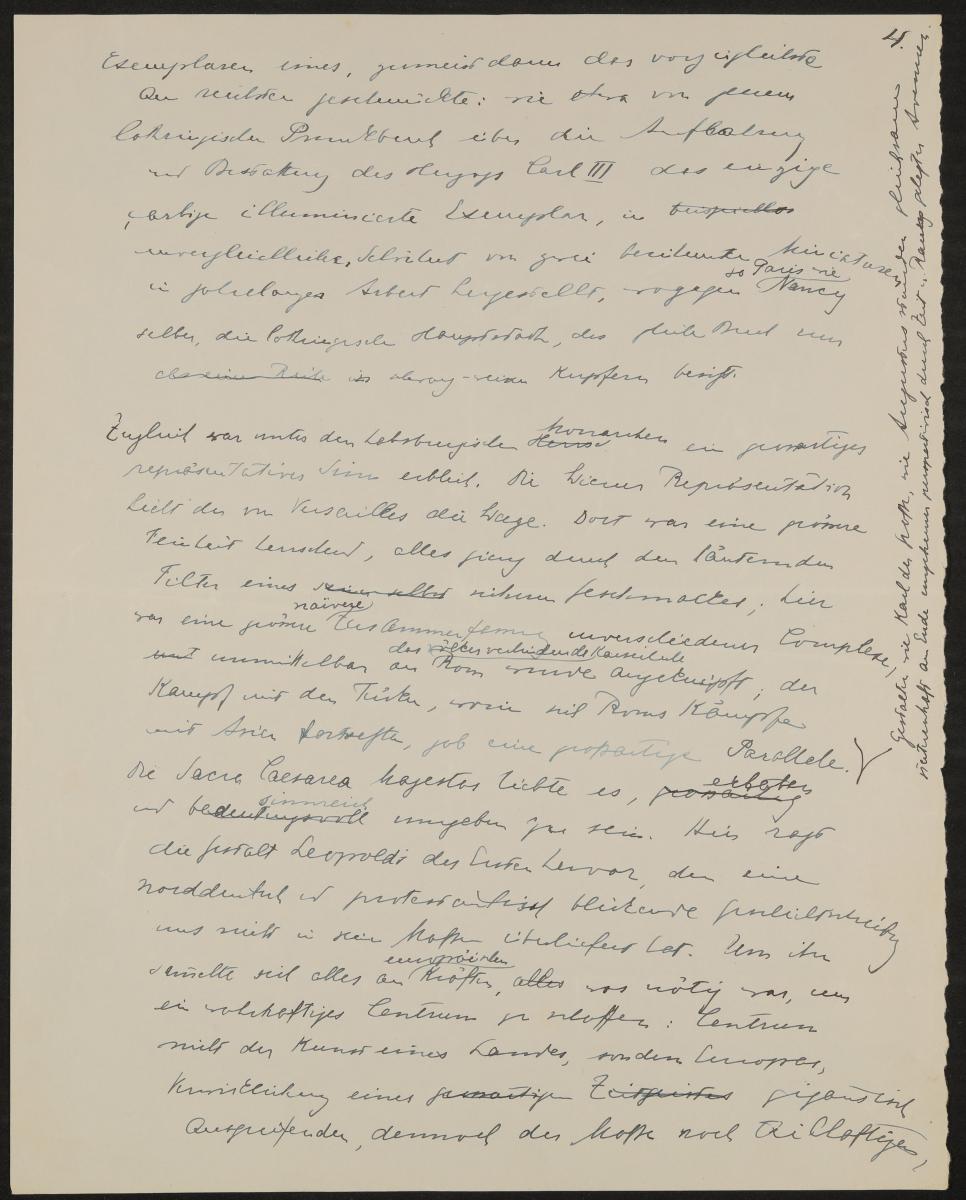 4.
Exemplaren eines, zumeist dann das vorzüglichste
am reichsten geschmückte: wie etwa von jenem
lothringischen Prunkbuch über die Aufbahrung
und Bestattung des Herzogs Carl III das einzige
farbige illuminierte Exemplar, in beispiellos
unvergleichlicher Schönheit von zwei berühmten Miniaturen
in jahrelanger Arbeit hergestellt, wogegen Nancy
so Paris wie
selber, die lothringische Hauptstadt, das gleiche Buch nur
als eine Reihe in schwarz-weissen Kupfern besitzt.
Zugleich war unter den habsburgischen Monarchen ein grossartiges
repräsentativer Sinn erblich. Die Wiener Repräsentation
hielt der von Versailles die Wage. Dort war eine grössere
Feinheit herrschend, alles ging durch den läuternden
Filter eines seiner selbst sicheren Geschmackes; hier
war eine grössere naivere Zusammenfassung verschiedener Complexe,
und unmittelbar an das Rom wurde angeknüpft; der
Kampf mit den Türken, worin sich Roms Kämpfe
mit Asien fortsetzten, gab eine großartige Parallele.
Die Sacra Caesarea Majestas liebte es, großartig erhaben
und bedeutungsvoll sinnreich umgeben zu sein. Hier ragt
die Gestalt Leopolds des Ersten hervor, den eine
norddeutsch und protestantisch blickende Geschichtschreibung
uns nicht in sein Maßen überliefert hat. Um ihn
sammelte sich alles an europäischen Kräften, alles was nötig war, um
ein wahrhaftiges Centrum zu schaffen: Centrum
nicht der Kunst eines Landes, sondern Europas,
Verwirklichung eines grossartigen Zeitgeistes gigantisch
ausgreifenden, dennoch der Maße noch theilhaftigen,
Gestalten wie Karl der Große, wie Augustus wurden gleichsam
am Ende ungeheurer durch Zeit u. Raum gelegter Avenuen.